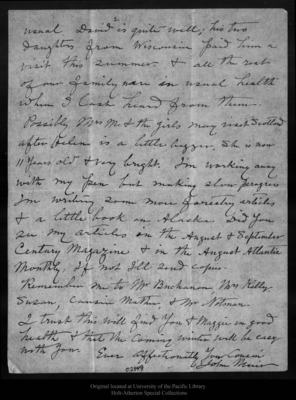 usual David is quite well; his two
daughters from Wisconsin paid him a
visit this summer. & all the rest
of our family were in usual health
when I last heard from them.
Possibly Mrs M. & the girls may visit Scotland
after Helen is a little bigger. She is now
11 years old & very bright. I'm working away
with my pen but making slow progress
I'm writing some more forestry articles
& a little book on Alaska. Did you
see my articles in the August & September
Century Magazine & in the August Atlantic
Monthly. If not I'll send copies.
Remember me to Mr Buchanan Mrs Kelly,
Susan, cousin Mather, & Mr
I trust this will find you & Maggie in good
health & that the coming winter will be easy
with you. Ever Affectionately Your Cousin
John Muir
Original located at University of the Pacific Library
Holt-Atherton Special Collections